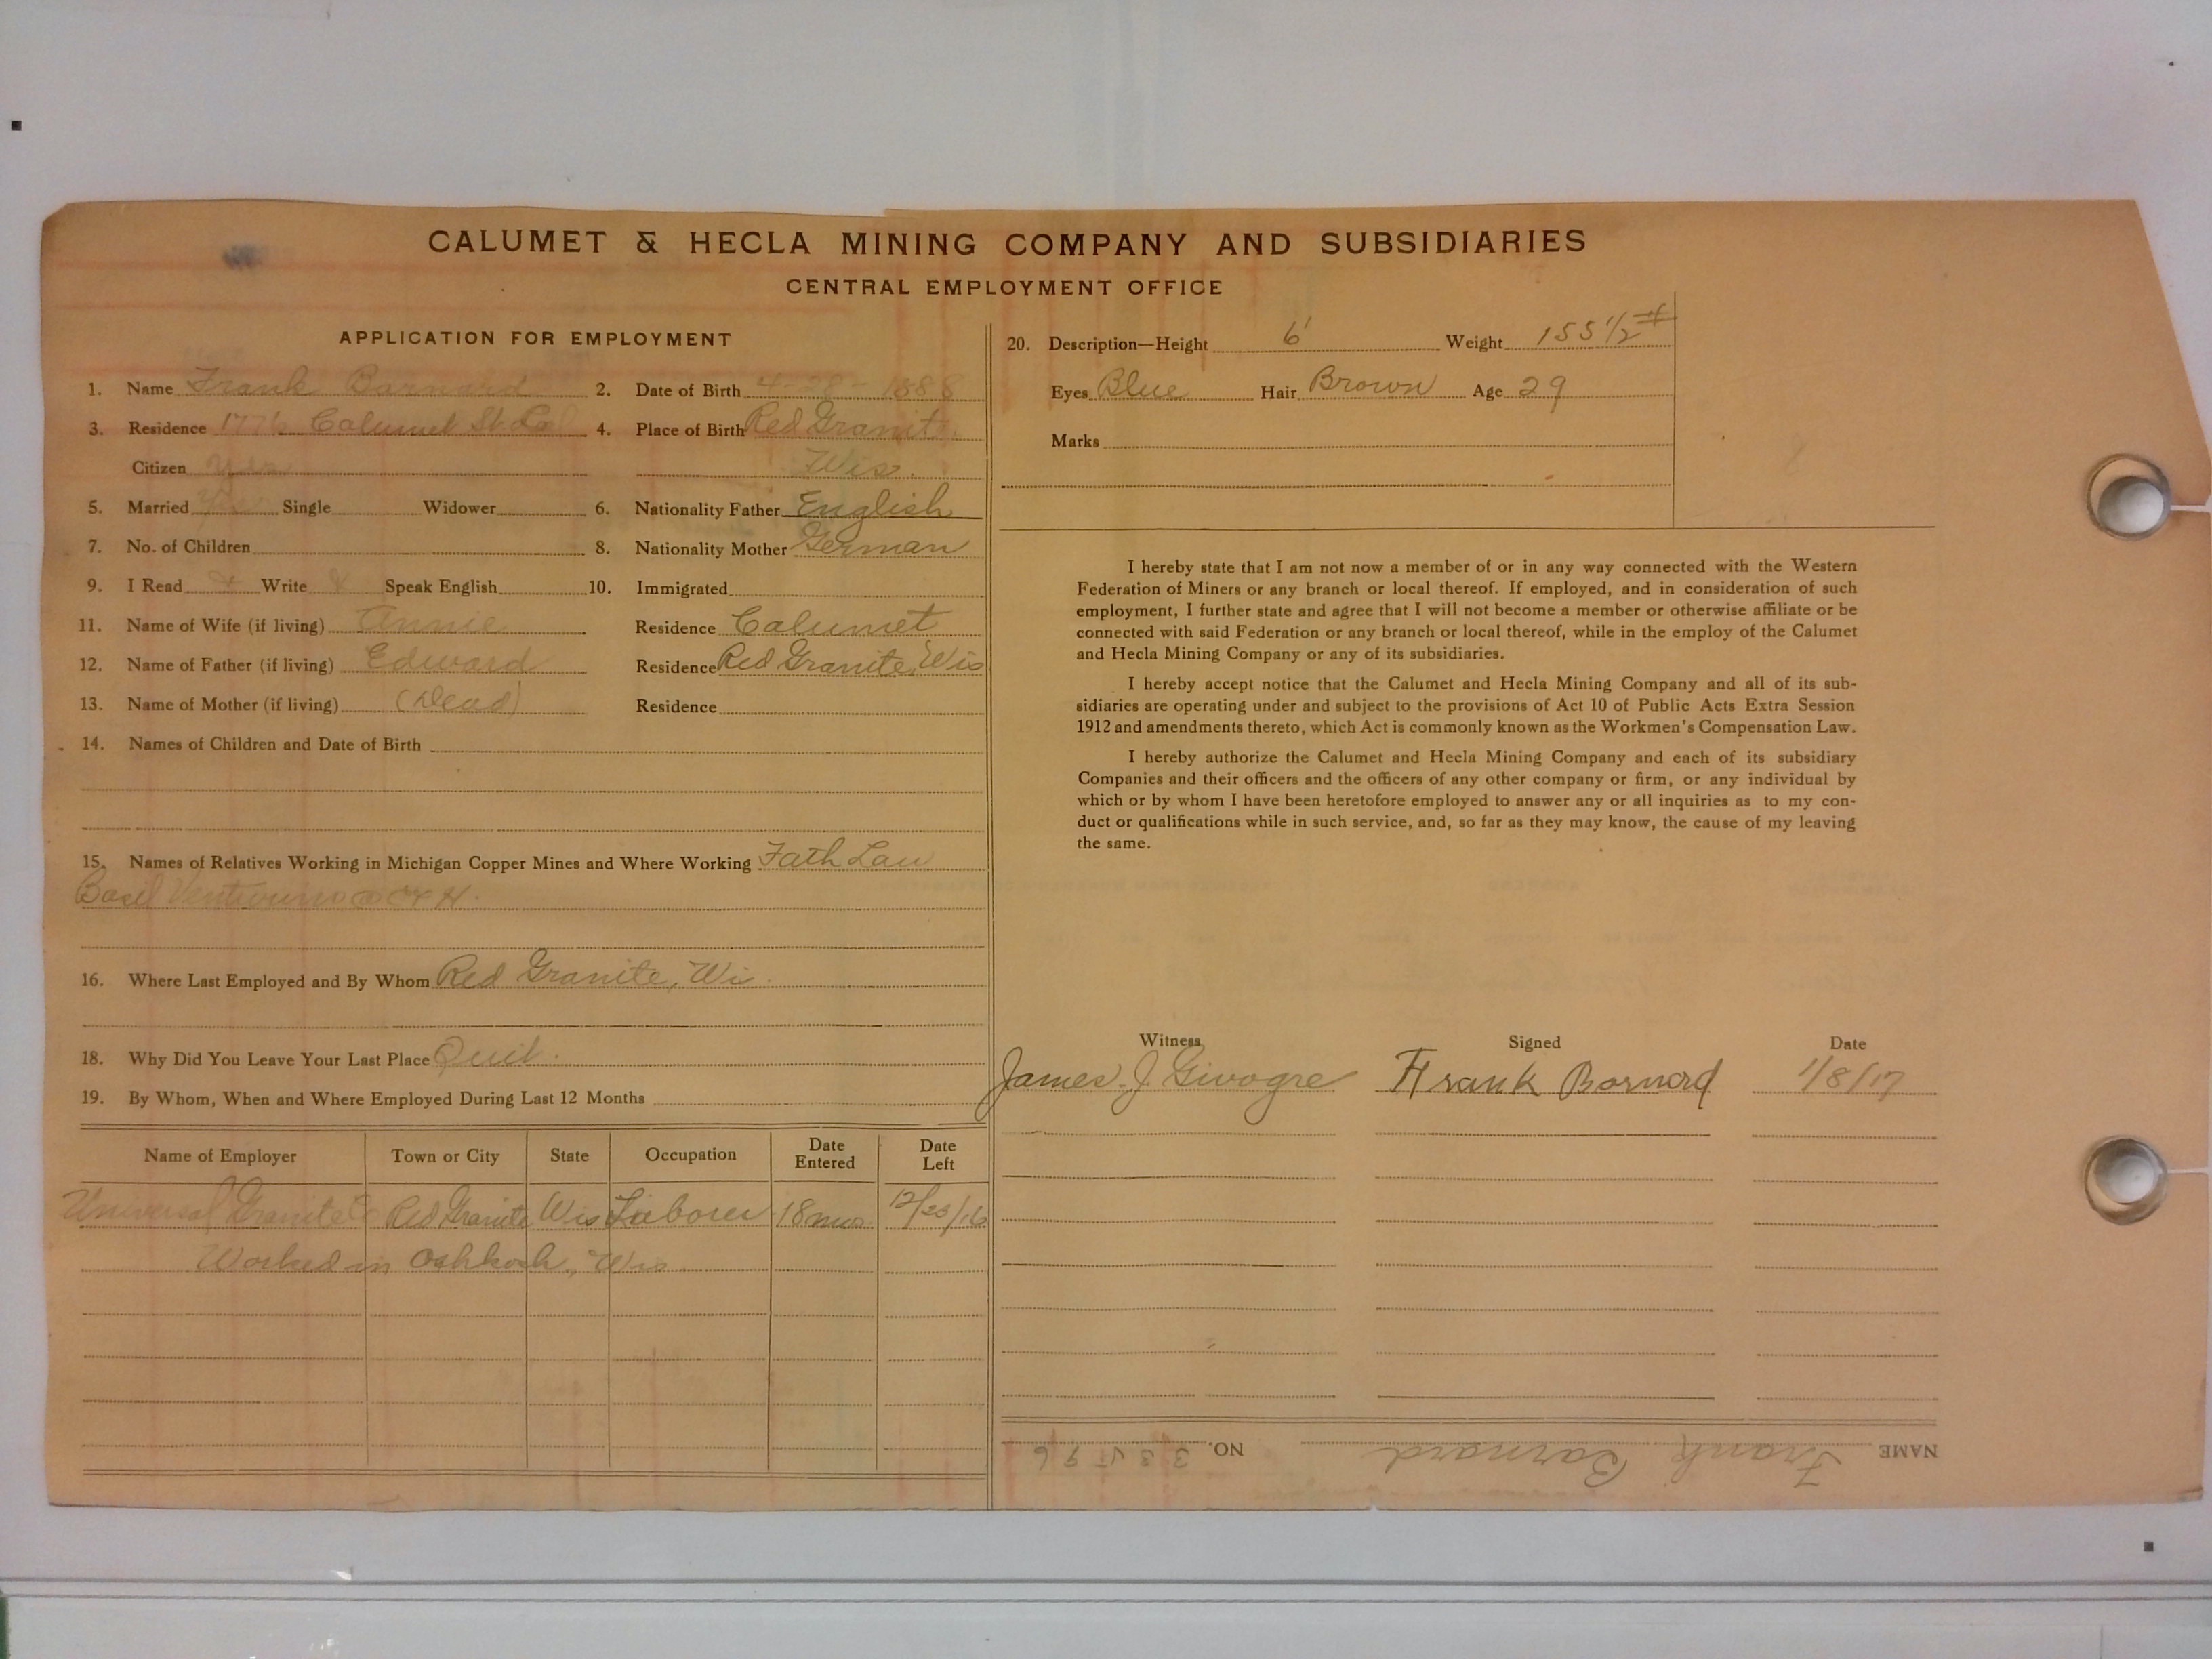 CALUMET & HECLA MINING COMPANY AND SUBSIDIARIES
CENTRAL EMPLOYMENT OFFICE
APPLICATION FOR EMPLOYMENT
1. Name Frank Barnard 2. Date of Birth 4-28-1888
3. Residence Calumet St. 4. Place of Birth Red Granite
Citizen Yes Wis.
5. Married Yes Single Widower 6. Nationality Father English
7. No. of Children 8. Nationality Mother German
9. I Read Write Speak English 10. Immigrated
11. Name of Wife (if living) Annie Residence Calumet
12. Name of Father (if living) Edward Residence Red Granite, Wis
13. Name of Mother (if living) (Dead) Residence
14. Names of Children and Date of Birth
15. Names of Relatives Working in Michigan Copper Mines and Where Working Fath Law
Basil C & H.
16. Where Last Employed and By Whom Red Granite, Wis.
18. Why Did You Leave Your Last Place Quit.
19. By Whom, When and Where Employed During Last 12 Months
Name of Employer Town or City State Occupation Date Entered Date Left
Universal Granite Co Red Granite Wis Laborer 18 mos. 12/23/16
Worked in Oshkosh, Wis.
20. Description—Height 6' Weight 155 1/2 #
Eyes Blue Hair Brown Age 29
Marks
I hereby state that I am not now a member of or in any way connected with the Western
Federation of Miners or any branch or local thereof. If employed, and in consideration of such
employment, I further state and agree that I will not become a member or otherwise affiliate or be
connected with said Federation or any branch or local thereof, while in the employ of the Calumet
and Hecla Mining Company or any of its subsidiaries.
I hereby accept notice that the Calumet and Hecla Mining Company and all of its sub-
sidiaries are operating under and subject to the provisions of Act 10 of Public Acts Extra Session
1912 and amendments thereto, which Act is commonly known as the Workmen's Compensation Law.
I hereby authorize the Calumet and Hecla Mining Company and each of its subsidiary
Companies and their officers and the officers of any other company or firm, or any individual by
which or by whom I have been heretofore employed to answer any or all inquiries as to my con-
duct or qualifications while in such service, and, so far as they may know, the cause of my leaving
the same.
Witness Signed Date
James J. Givogre Frank Bornord 1/8/17
NAME Frank Barnard NO.